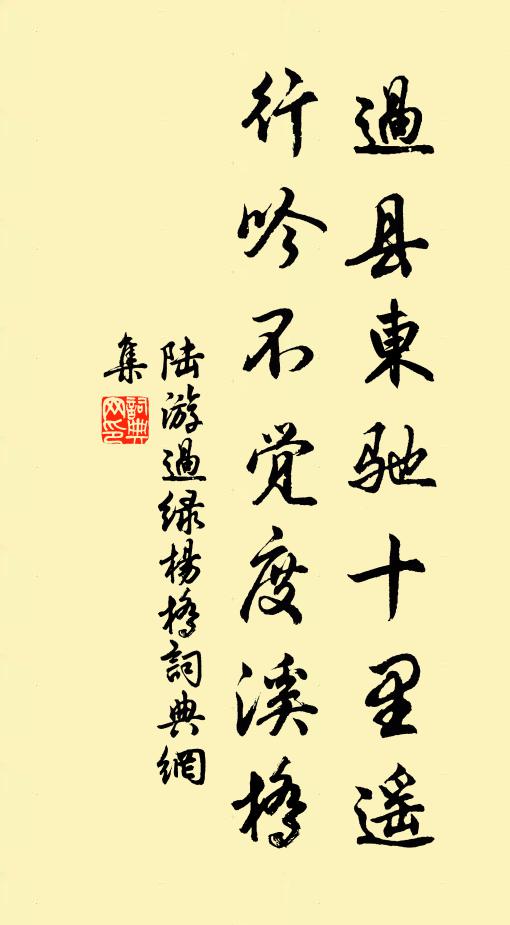 過县東驰十里遥
行吟不觉度溪橋
陆游過绿杨橋詞典網
集
詞典
网印